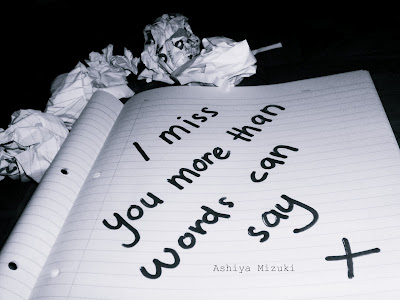 I miss
you more than
words can
say
+
Ashiya Mizuki